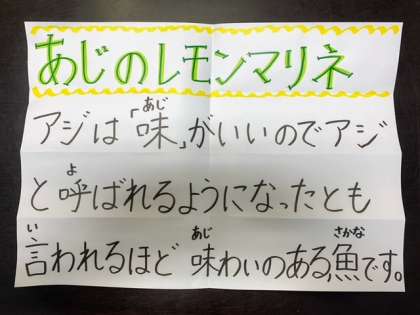 あじのレモンマリネ
アジは「味」がいいのでアジ
と呼ばれるようになったとも
言われるほど 味わいのある魚です。